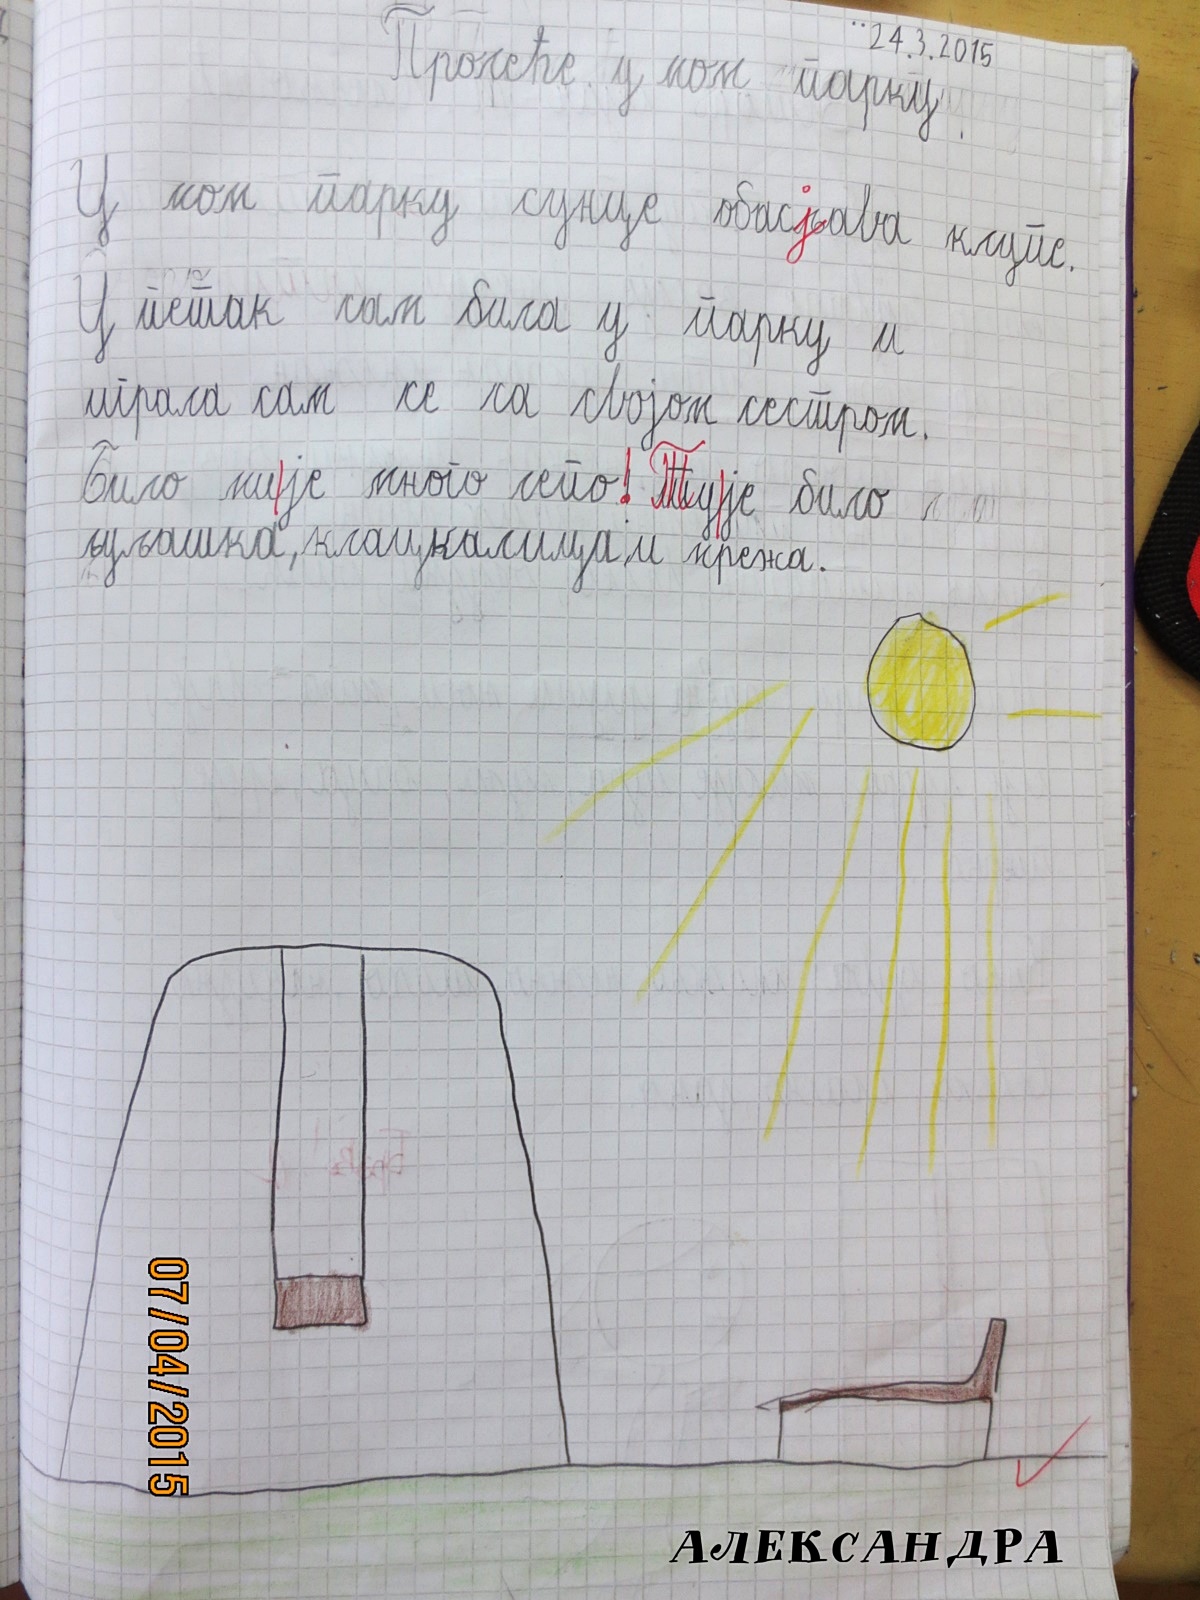 24.3.2015
Пролеће у мом парку.
У мом парку сунце обасјава клупе.
У петак сам била у парку и
играла сам се са својом сестром.
Било ми је много лепо! Ту је било
љуљашка, клацкалица и мрежа.
07/04/2015
АЛЕКСАНДРА